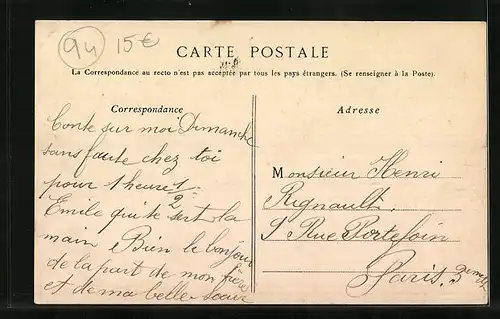 94 15€
CARTE POSTALE
La Correspondance au recto n'est pas acceptée par tous les pays étrangers. (Se renseigner à la Poste).
Correspondance
Conte sur moi Dimanche
sans faute chez toi
pour 1 heure 1/2
Emile qui te sert la
main Bien le bonjour
de la part de mon frère
et de ma belle soeur
Adresse
Monsieur Henri
Rignault
Rue Portefoin
Paris. 3eme